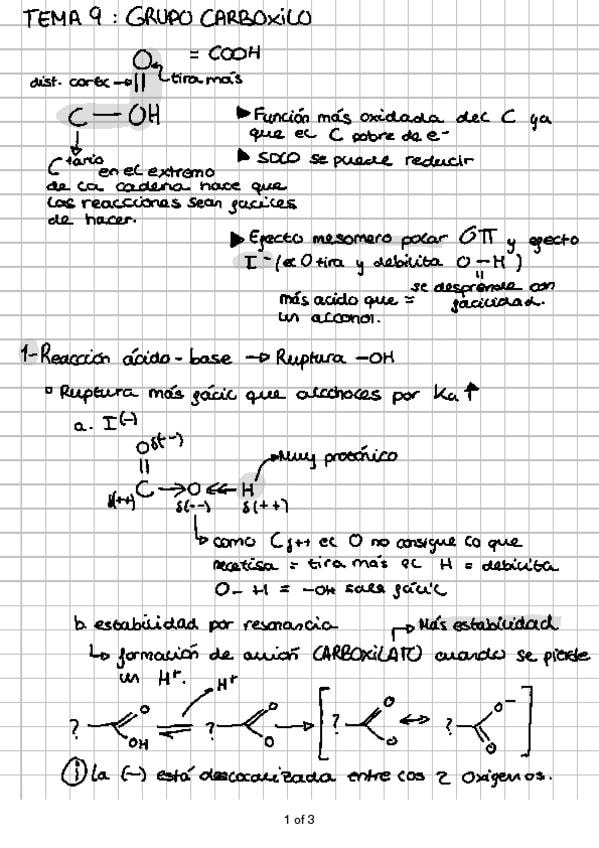 TEMA 9 : GRUPO CARBOXILO
O = COOH
dist. corta → || tira más
C — OH
▶ Función más oxidada del C ya
que el C pobre de e-
▶ SOLO se puede reducir
C tario en el extremo
de la cadena hace que
las reacciones sean fáciles
de hacer.
▶ Efecto mesomero polar σπ y efecto
I- (el O tira y debilita O-H)
se desprende con
facilidad.
más acido que =
un alcohol.
1-Reacción ácido-base → Ruptura -OH
Ruptura más fácil que alcoholes por Ka ↑
a. I(-)
O δ(-)
||
Muy protónico
C → O ← H
δ(++) δ(--) δ(++)
como Cδ++ el O no consigue lo que
necesita = tira más el H = debilita
O-H = -OH sale fácil
b. estabilidad por resonancia
Más estabilidad
formación de anión CARBOXILATO cuando se pierde
un H+.
H+
? O OH ⇌ ? O O → [ ? O O ↔ ? O- O ]
! La (-) está deslocalizada entre los 2 Oxígenos.
1 of 3